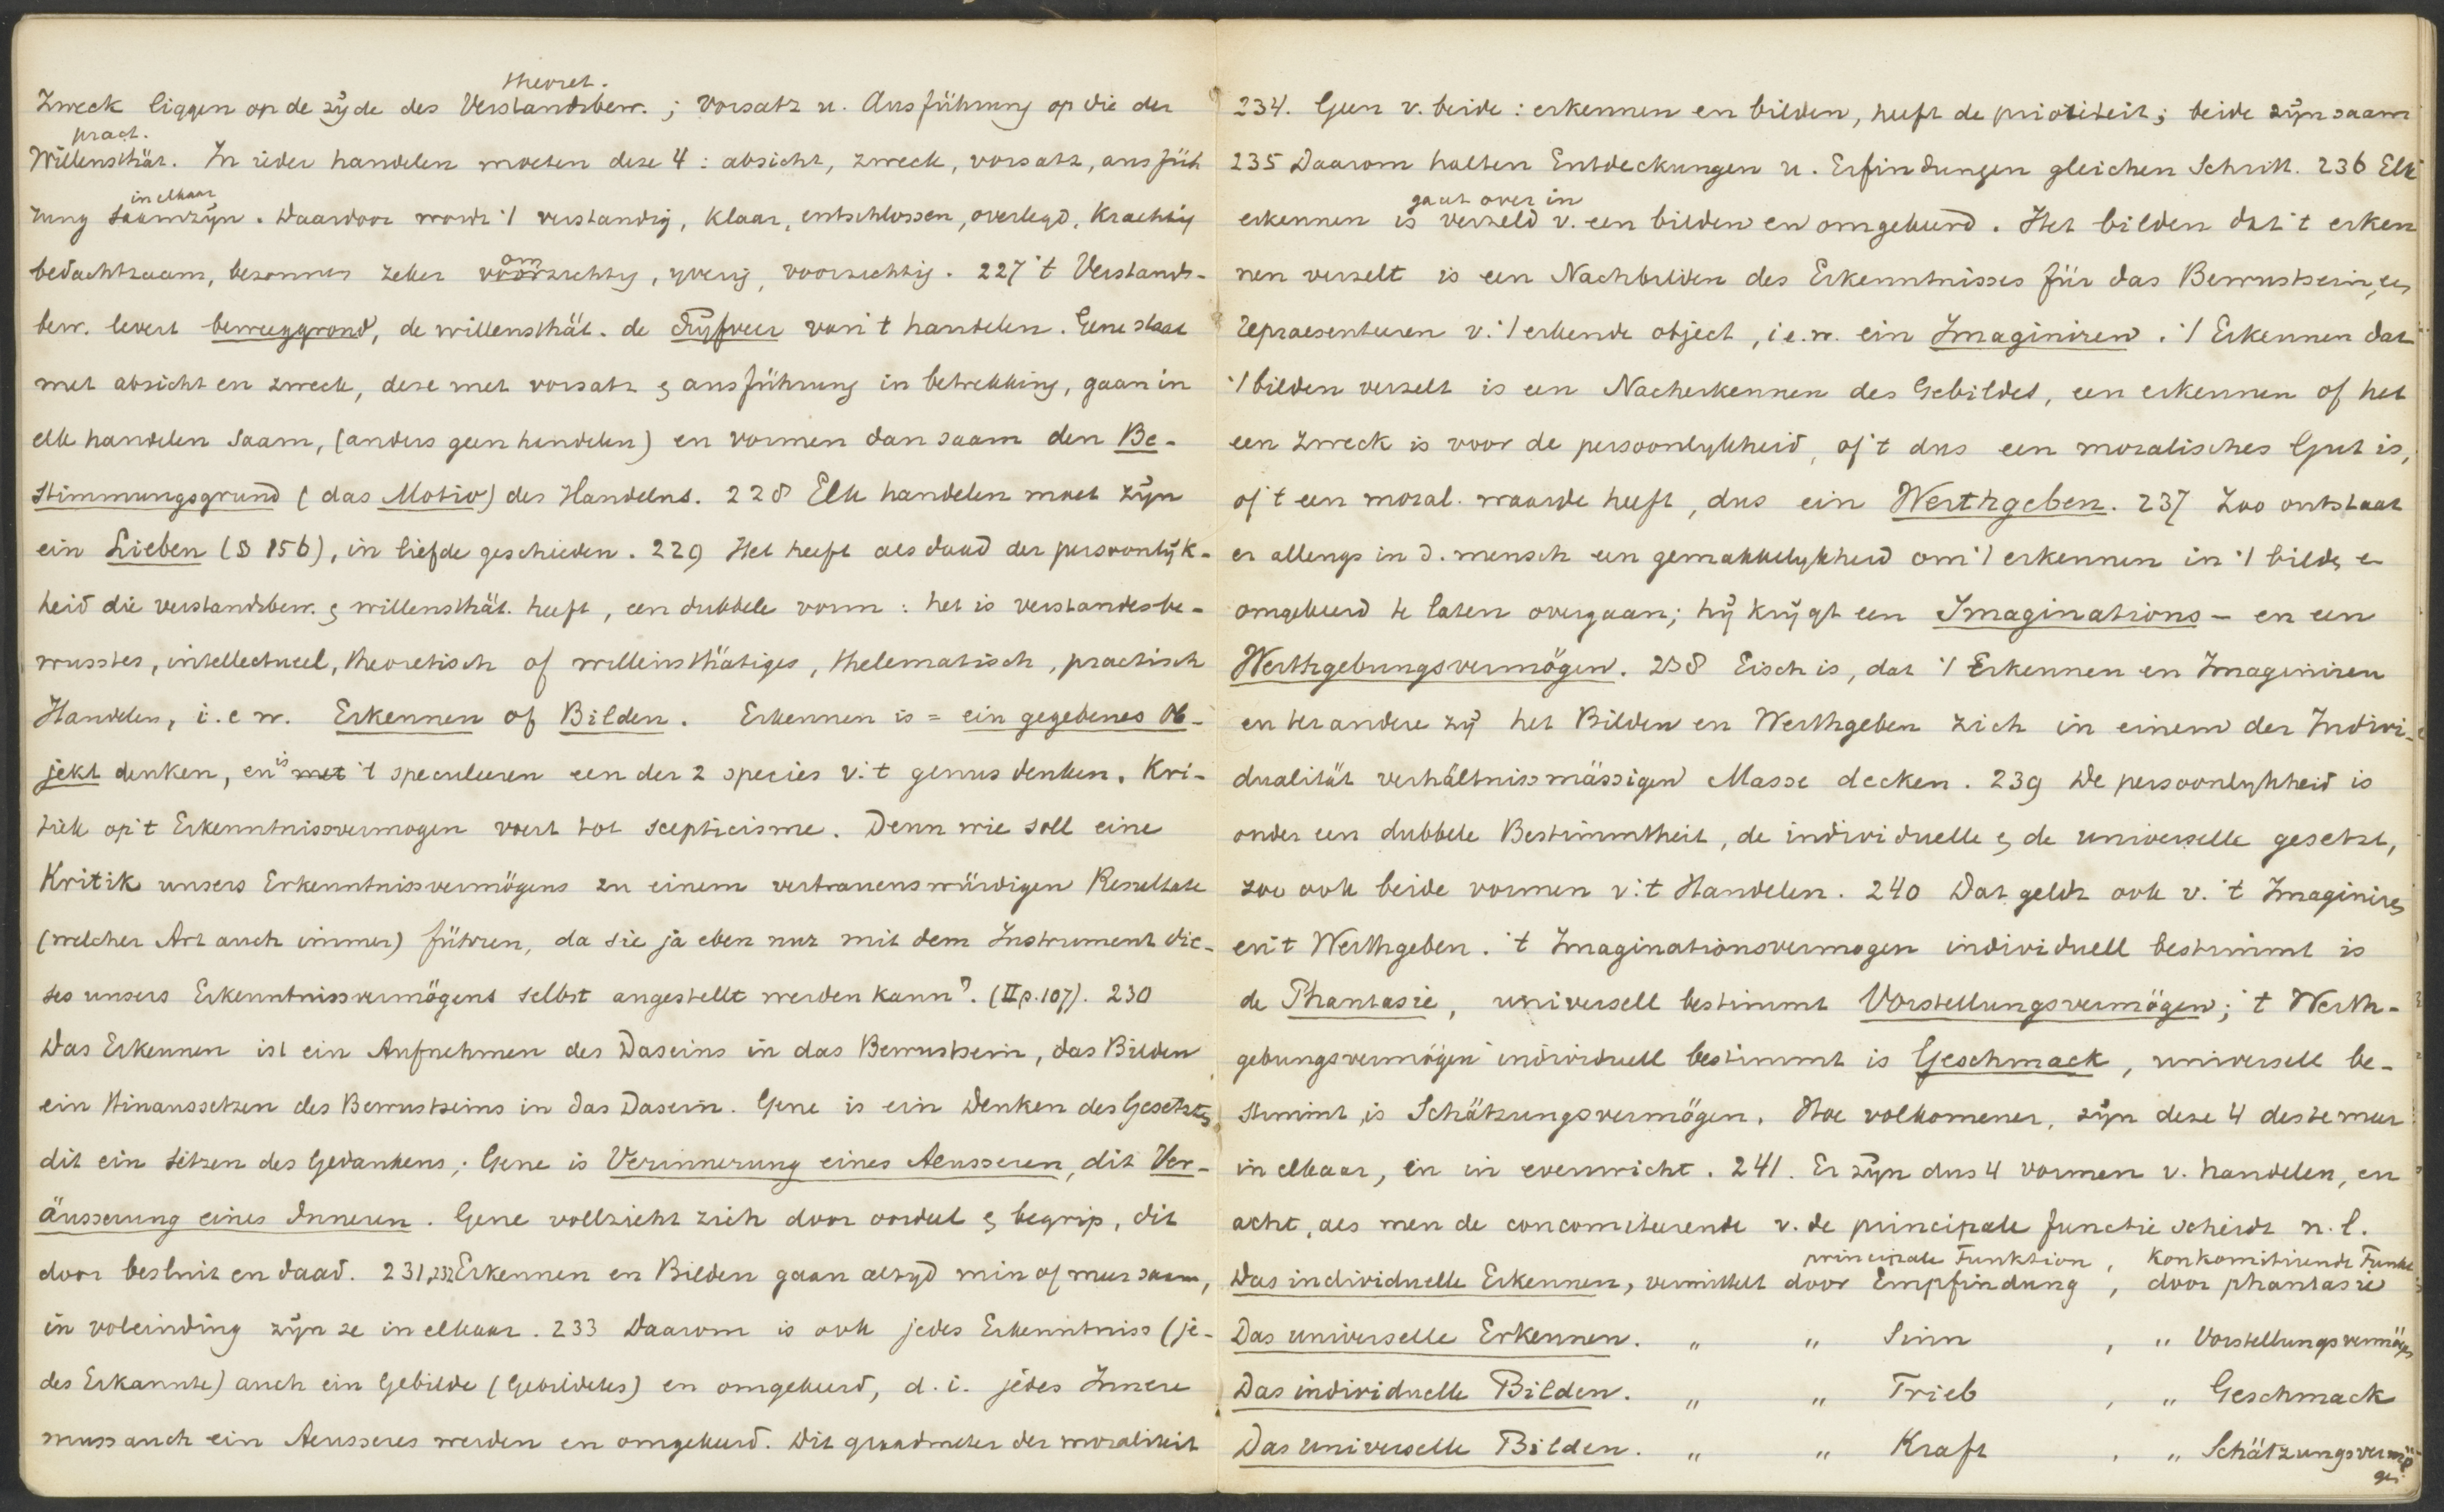 theoret.
Zweck liggen op de zyde des Verstandsbew. ; vorsatz u. Ausführung op die der
pract.
Willensthät. In ieder handelen moeten deze 4 : absicht, zweck, vorsatz, ausfüh
in elkaar
rung saamzyn. Daardoor wordt 't verstandig, klaar, entschlossen, overlegd, krachtig
om
bedachtzaam, besonnen zeker voorzichtig, yverig, voorzichtig. 227 't Verstands-
bew. levert beweeggrond, de willensthät. de Dryfveer van 't handelen. Gene staat
met absicht en zweck, deze met vorsatz & ausführung in betrekking, gaan in
elk handelen saam, (anders geen handelen) en vormen dan saam den Be-
stimmungsgrund (das Motiv) des Handelns. 228 Elk handelen moet zyn
ein Lieben (§ 156), in liefde geschieden. 229 Het heeft als daad der persoonlyk-
heid die verstandsbew. & willensthät. heeft, een dubbele vorm : het is verstandesbe-
wusstes, intellectueel, theoretisch of willensthätiges, thelematisch, practisch
Handelen, i. e w. Erkennen of Bilden. Erkennen is = ein gegebenes Ob-
jekt denken, en is met 't speculeeren een der 2 species v. 't genus denken. Kri-
tiek op 't Erkenntnissvermogen voert tot scepticisme. Denn wie soll eine
Kritik unsers Erkenntnissvermögens zu einem vertrauenswürdigen Resultate
(welcher Art auch immer) führen, da sie ja eben nur mit dem Instrument die-
ses unsers Erkenntnissvermögens selbst angestellt werden kann? (II p. 107). 230
Das Erkennen ist ein Aufnehmen des Daseins in das Bewustsein, das Bilden
ein Hinaussetzen des Bewustseins in das Dasein. Gene is ein Denken des Gesetzten
dit ein setzen des Gedankens; Gene is Verinnerung eines Aeusseren, dit Ver-
äusserung eines Inneren. Gene vollzieht zich door oordeel & begrip, dit
door besluit en daad. 231,232 Erkennen en Bilden gaan altyd min of meer saam,
in voleinding zyn ze in elkaar. 233 Daarom is ook jedes Erkenntniss (je-
des Erkannte) auch ein Gebilde (Gebildetes) en omgekeerd, d. i. jedes Innere
muss auch ein Aeusseres werden en omgekeerd. Dit graadmeter der moraliteit
234. Geen v. beide : erkennen en bilden, heeft de prioriteit; beide zyn saam
235 Daarom halten Entdeckungen u. Erfindungen gleichen Schritt. 236 Elk
gaat over in
erkennen is verzeld v. een bilden en omgekeerd. Het bilden dat 't erken
nen verzelt is een Nachbilden des Erkenntnisses für das Bewustsein, een
repraesenteeren v. 't erkende object, i e. w. ein Imaginiren. 't Erkennen dat
't bilden verzelt is een Nacherkennen des Gebildes, een erkennen of het
een zweck is voor de persoonlykheid, of 't dus een moralisches Gut is,
of 't een moral. waarde heeft, dus ein Werthgeben. 237 Zoo ontstaat
er allengs in d. mensch een gemakkelykheid om 't erkennen in 't bilden en
omgekeerd te laten overgaan; hy krygt een Imaginations- en een
Werthgebungsvermögen. 238 Eisch is, dat 't Erkennen en Imaginiren
en ter andere zy het Bilden en Werthgeben zich in einem der Indivi-
dualität verhältnissmässigen Masse decken. 239 De persoonlykheid is
onder een dubbele Bestimmtheit, de individuelle & de universelle gesetzt,
zoo ook beide vormen v. 't Handelen. 240 Dat geldt ook v. 't Imaginiren
en 't Werthgeben. 't Imaginationsvermogen individuell bestimmt is
de Phantasie, universell bestimmt Vorstellungsvermögen; 't Werth-
gebungsvermögen individuell bestimmt is Geschmack, universell be-
stimmt is Schätzungsvermögen. Hoe volkomener, zyn deze 4 des te meer
in elkaar, en in evenwicht. 241. Er zyn dus 4 vormen v. handelen, en
acht, als men de concomiteerende v. de principale functie scheidt n. l.
principale Funktion, Konkomitirende Funkt
Das individuelle Erkennen, vermittelt door Empfindung , door phantasie
Das universelle Erkennen. " " Sinn , " Vorstellungsvermögen
Das individuelle Bilden. " " Trieb , " Geschmack
Das universelle Bilden. " " Kraft , " Schätzungsvermö
gen